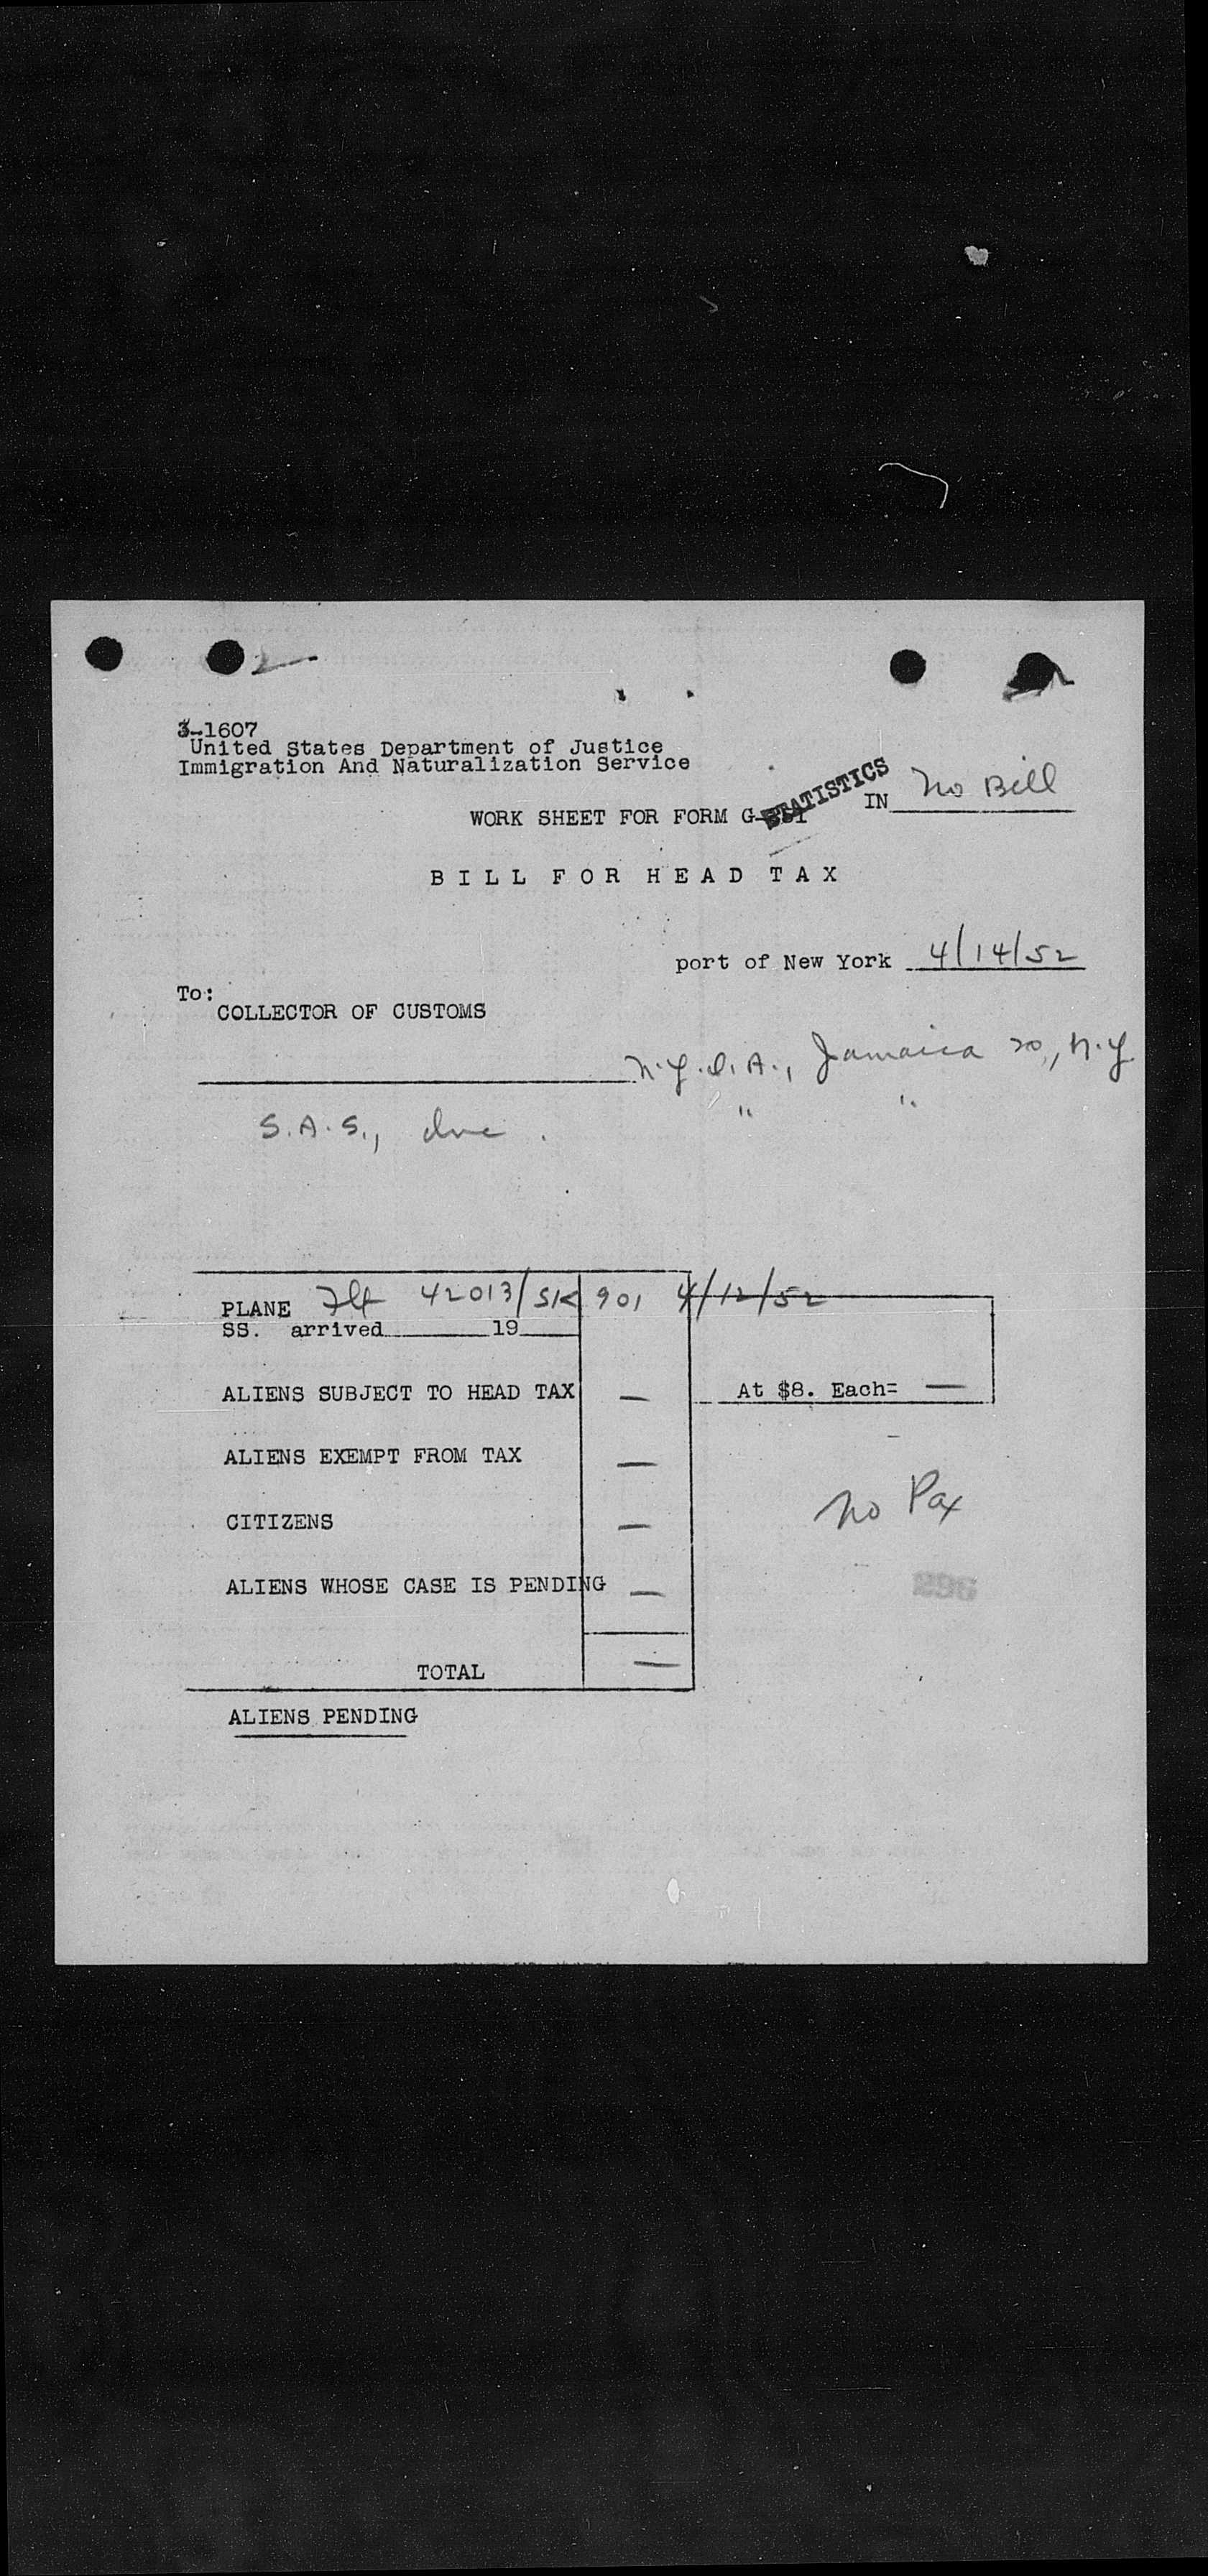 3-1607
United States Department of Justice
Immigration And Naturalization Service
STATISTICS
IN No Bill
WORK SHEET FOR FORM G-
BILL FOR HEAD TAX
port of New York 4/14/52
To:
COLLECTOR OF CUSTOMS
N.Y.I.A., Jamaica 20, N.Y.
" "
S.A.S., Inc.
PLANE Flt 42013/SK 901 4/12/52
SS. arrived 19
ALIENS SUBJECT TO HEAD TAX — At $8. Each= —
ALIENS EXEMPT FROM TAX —
No Pax
CITIZENS —
ALIENS WHOSE CASE IS PENDING —
TOTAL —
ALIENS PENDING